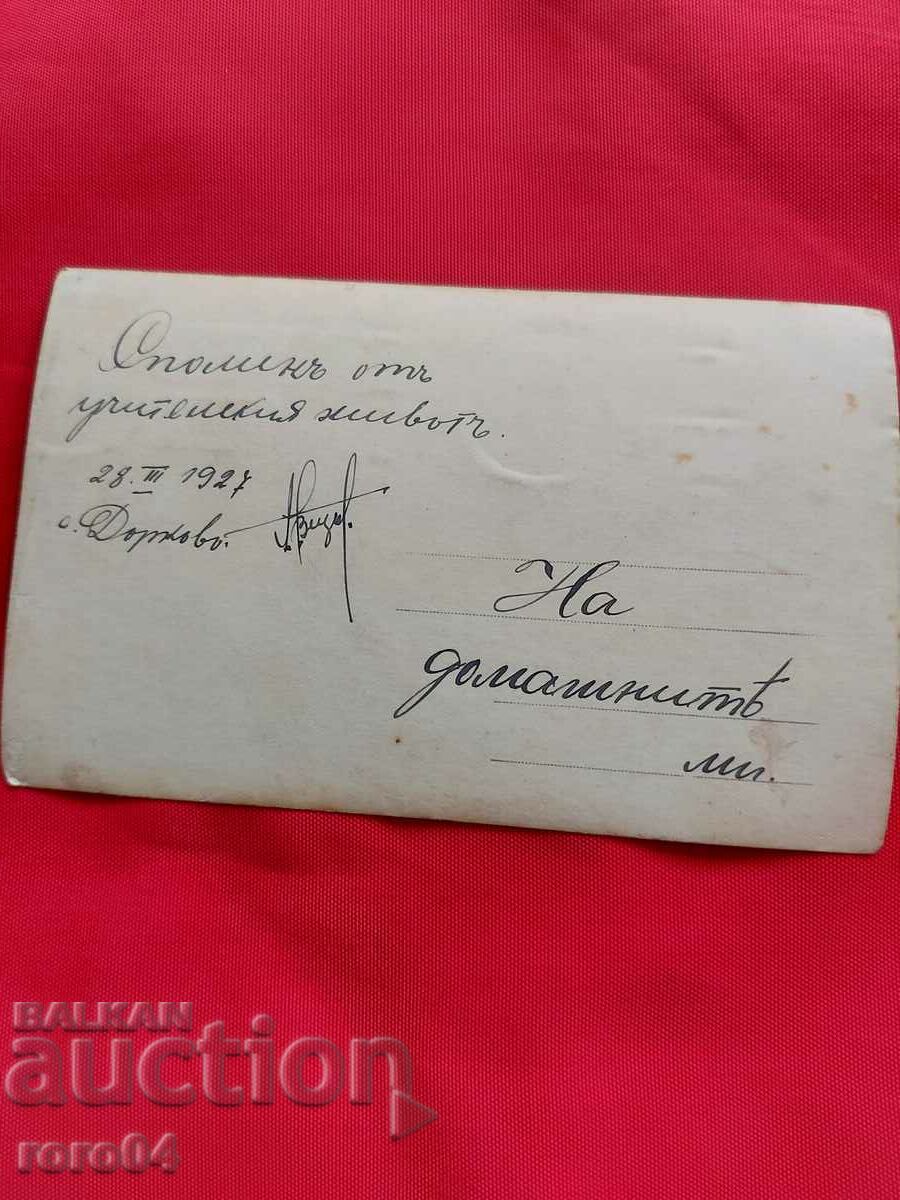 Споменъ отъ
учителския животъ.
28.III 1927
с. Дорково.
На
домашнитѣ
ми.
BALKAN
auction
roro04